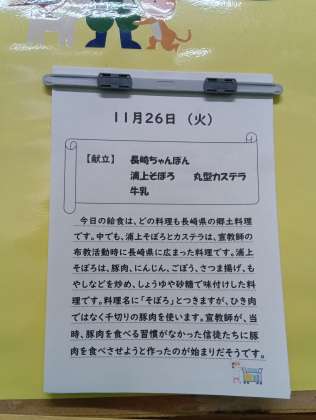 11月26日(火)
【献立】 長崎ちゃんぽん
浦上そぼろ 丸型カステラ
牛乳
今日の給食は、どの料理も長崎県の郷土料理
です。中でも、浦上そぼろとカステラは、宣教師の
布教活動時に長崎県に広まった料理です。浦上
そぼろは、豚肉、にんじん、ごぼう、さつま揚げ、も
やしなどを炒め、しょうゆや砂糖で味付けした料
理です。料理名に「そぼろ」とつきますが、ひき肉
ではなく千切りの豚肉を使います。宣教師が、当
時、豚肉を食べる習慣がなかった信徒たちに豚
肉を食べさせようと作ったのが始まりだそうです。